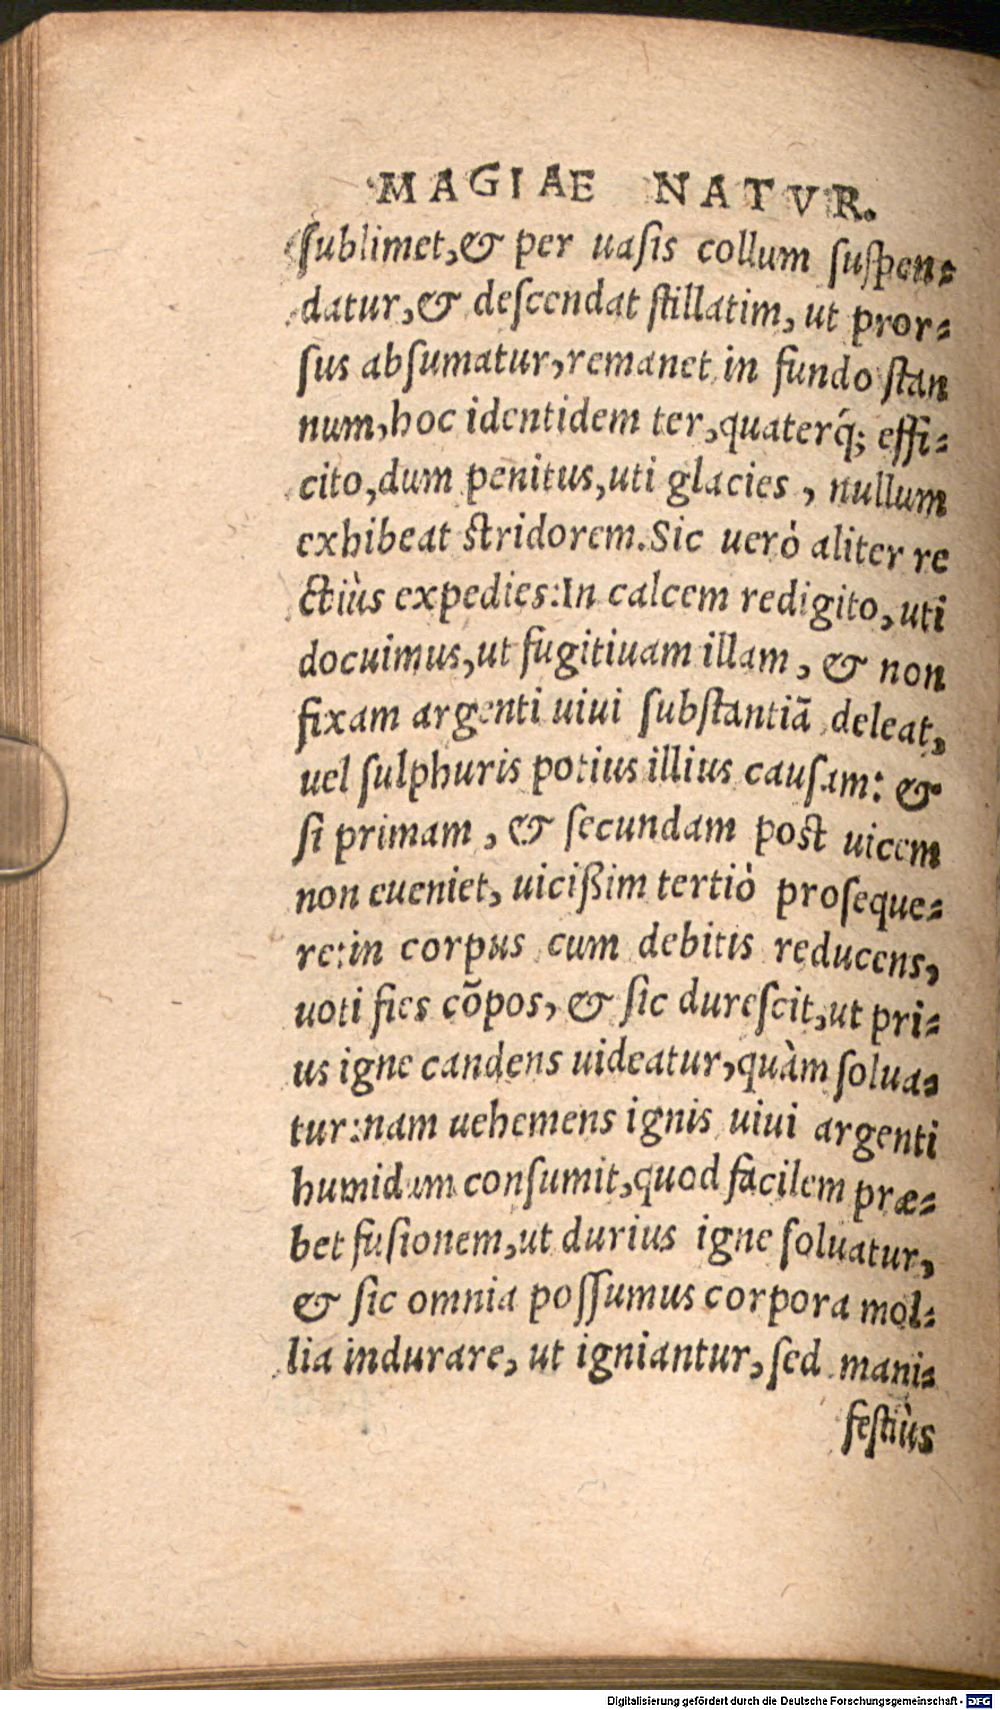 MAGIAE NATVR.
ſublimet, & per uaſis collum ſuſpen-
datur, & deſcendat ſtillatim, ut pror-
ſus abſumatur, remanet in fundo ſtan
num, hoc identidem ter, quaterq́; effi-
cito, dum penitus, uti glacies, nullum
exhibeat ſtridorem. Sic uerò aliter re
ctiùs expedies: In calcem redigito, uti
docuimus, ut fugitiuam illam, & non
fixam argenti uiui ſubſtantiã deleat,
uel ſulphuris potius illius cauſam: &
ſi primam, & ſecundam poſt uicem
non eueniet, uicißim tertiò proſeque-
re: in corpus cum debitis reducens,
uoti fies cõpos, & ſic dureſcit, ut pri-
us igne candens uideatur, quàm ſolua-
tur: nam uehemens ignis uiui argenti
humidum conſumit, quod facilem præ-
bet fuſionem, ut durius igne ſoluatur,
& ſic omnia poſſumus corpora mol-
lia indurare, ut igniantur, ſed mani-
feſtiùs
Digitalisierung gefördert durch die Deutsche Forschungsgemeinschaft - DFG